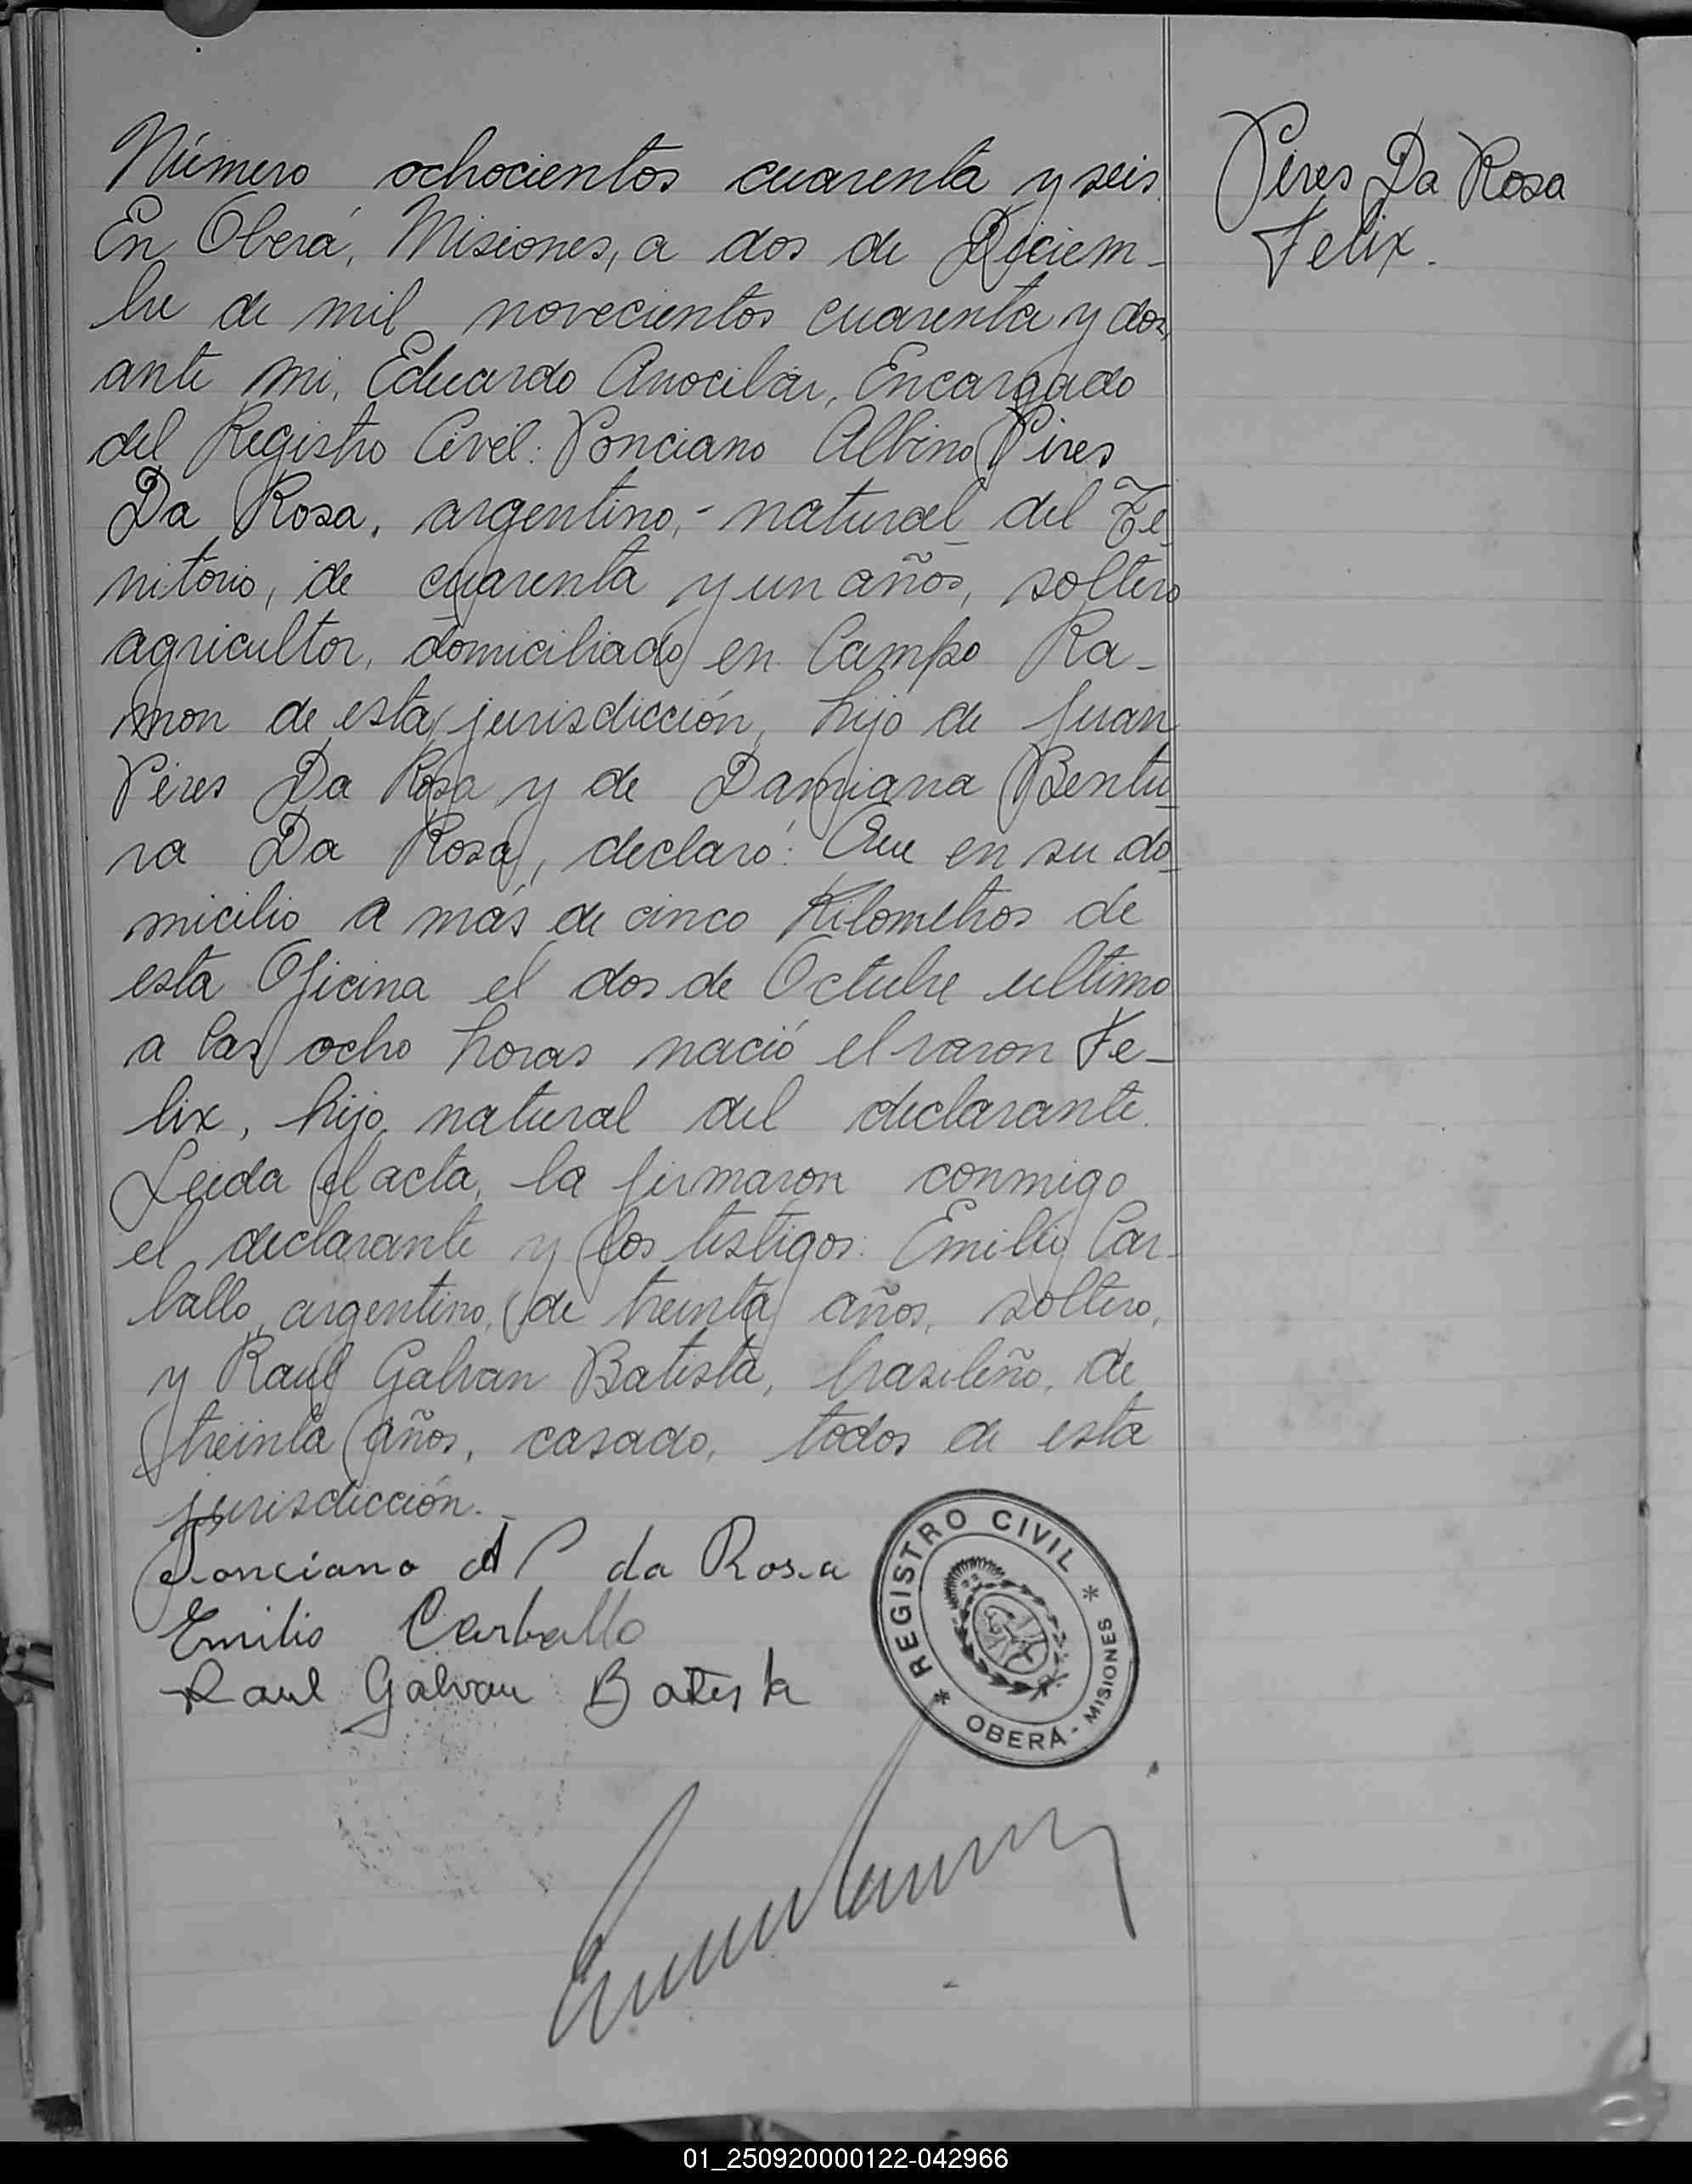 Número ochocientos cuarenta y seis
En Oberá, Misiones, a dos de Diciem-
bre de mil novecientos cuarenta y dos,
ante mi, Eduardo Encargado
del Registro Civil: Ponciano Albino Pires
Da Rosa, argentino,- natural del Te-
rritorio, de cuarenta y un años, soltero
agricultor, domiciliado en Campo Ra-
mon de esta jurisdicción, hijo de Juan
Pires Da Rosa y de Damiana Bentu-
ra Da Rosa, declaró: Que en su do-
micilio a más de cinco Kilometros de
esta Oficina el dos de Octubre ultimo
a las ocho horas nació el varon Fe-
lix, hijo natural del declarante.
Leida el acta, la firmaron conmigo
el declarante y los testigos: Emilio Car-
ballo, argentino, de treinta años, soltero,
y Raul Galvan Batista, brasileño, de
treinta años, casado, todos de esta
jurisdicción.-
Ponciano A P da Rosa
Emilio Carballo
Raul Galvan Batista
* REGISTRO CIVIL *
OBERÁ - MISIONES
Pires Da Rosa
Felix.
01_250920000122-042966